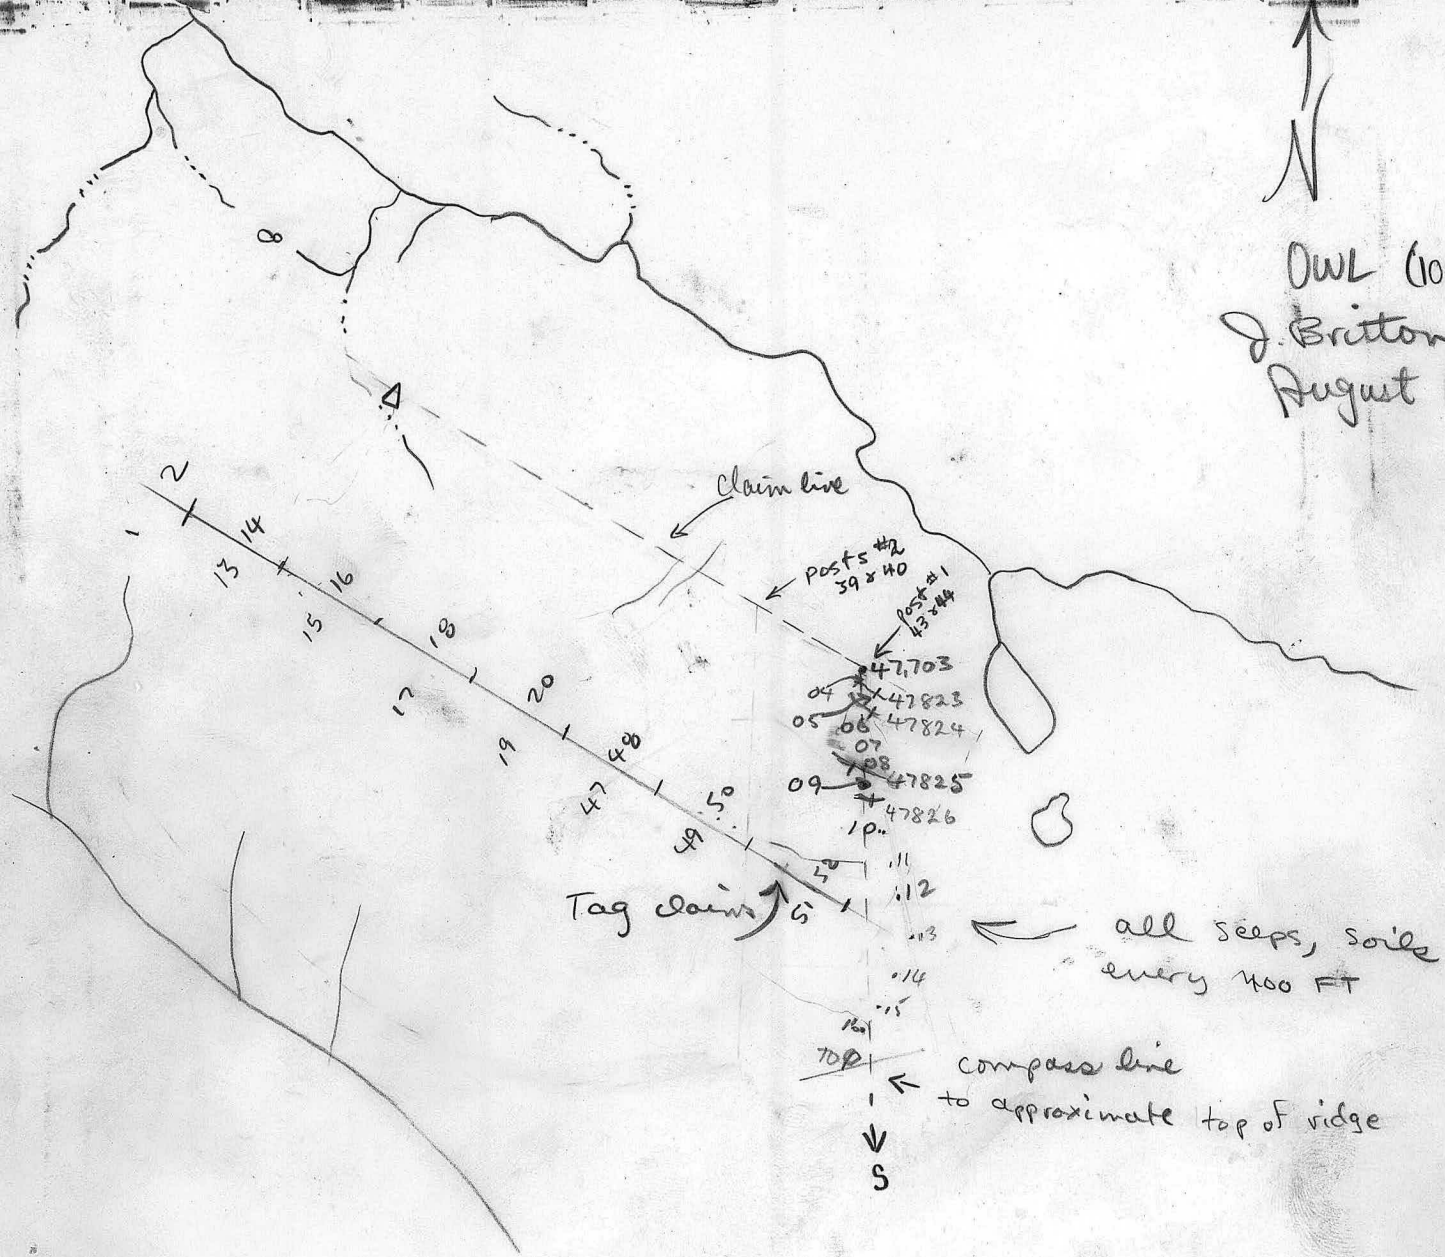 N
OWL (10
J. Britton
August
8
claim line
posts #2
39 & 40
post #1
43 & 44
2
1
14
13
16
15
18
17
20
19
48
47
50
49
52
47,703
04
47823
05
06
47824
07
08
09
47825
47826
10..
.11
.12
.13
.14
.15
16.
700
Tag claims
all seeps, soils
every 400 FT
compass line
to approximate top of ridge
S